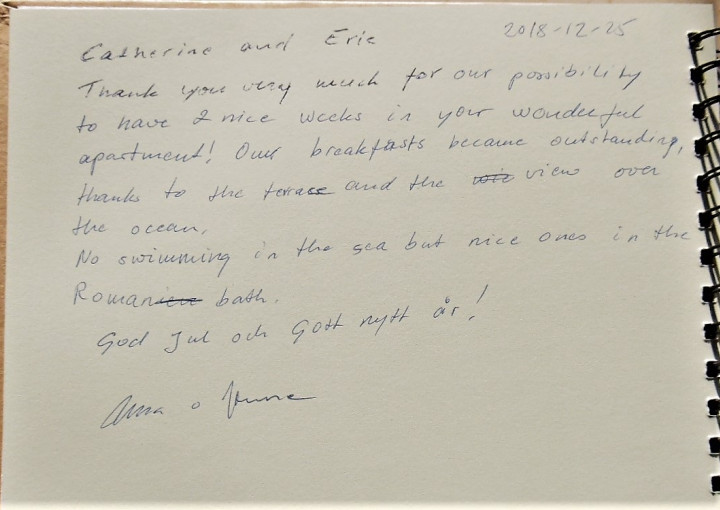 2018-12-25
Catherine and Eric
Thank you very much for our possibility
to have 2 nice weeks in your wonderful
apartment! Our breakfasts became outstanding,
thanks to the terrasse and the view over
the ocean.
No swimming in the sea but nice ones in the
Roman bath.
God Jul och Gott nytt år!
Anna o